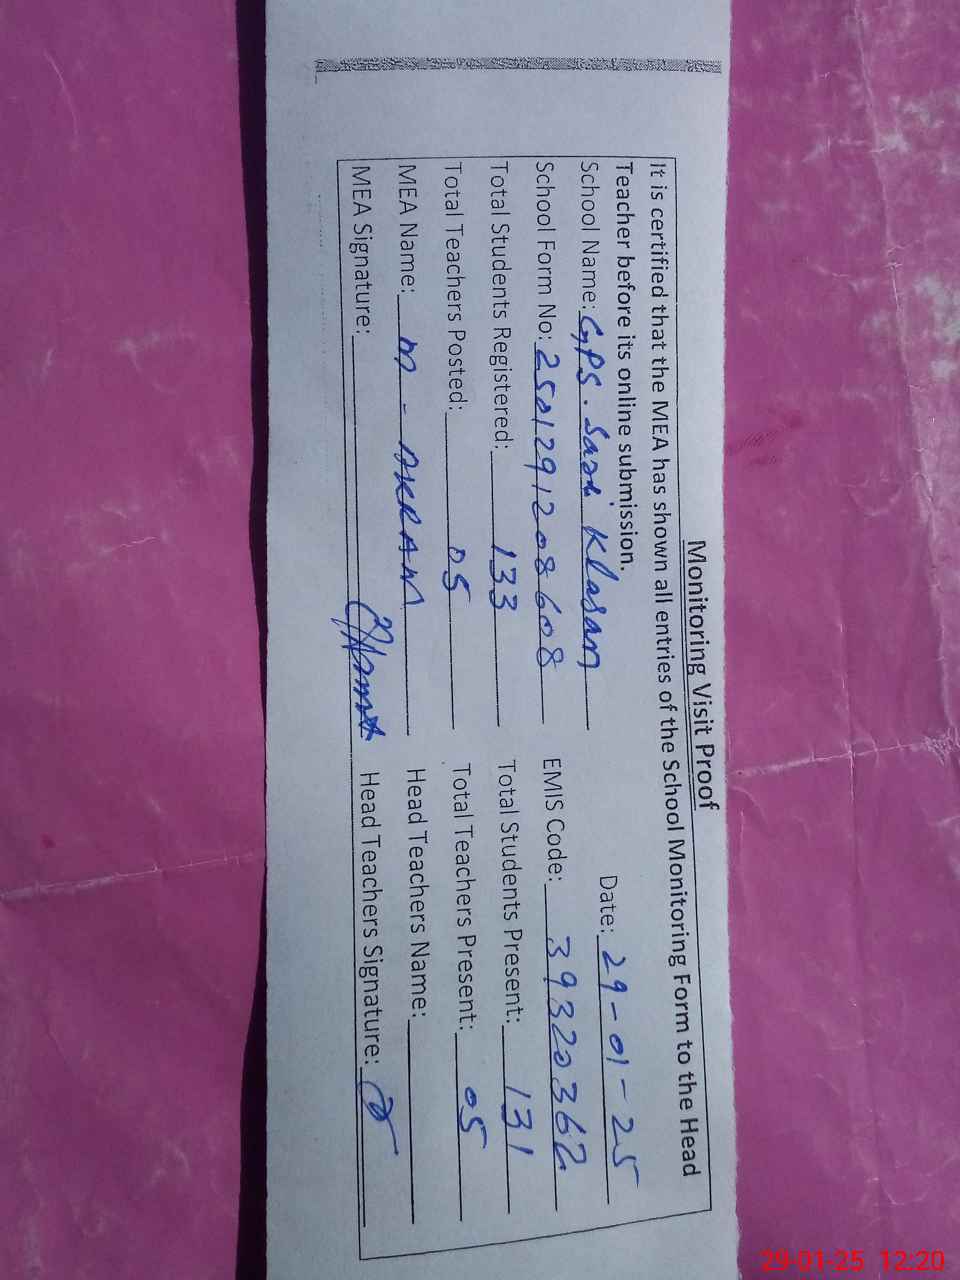 Monitoring Visit Proof
It is certified that the MEA has shown all entries of the School Monitoring Form to the Head
Teacher before its online submission.
Date: 29-01-25
School Name: GPS. Klasan
School Form No: 2501291208608 EMIS Code: 39320362
Total Students Registered: 133 Total Students Present: 131
Total Teachers Posted: 05 Total Teachers Present: 05
MEA Name: M - AKRAM Head Teachers Name:
MEA Signature: Head Teachers Signature:
29-01-25 12:20